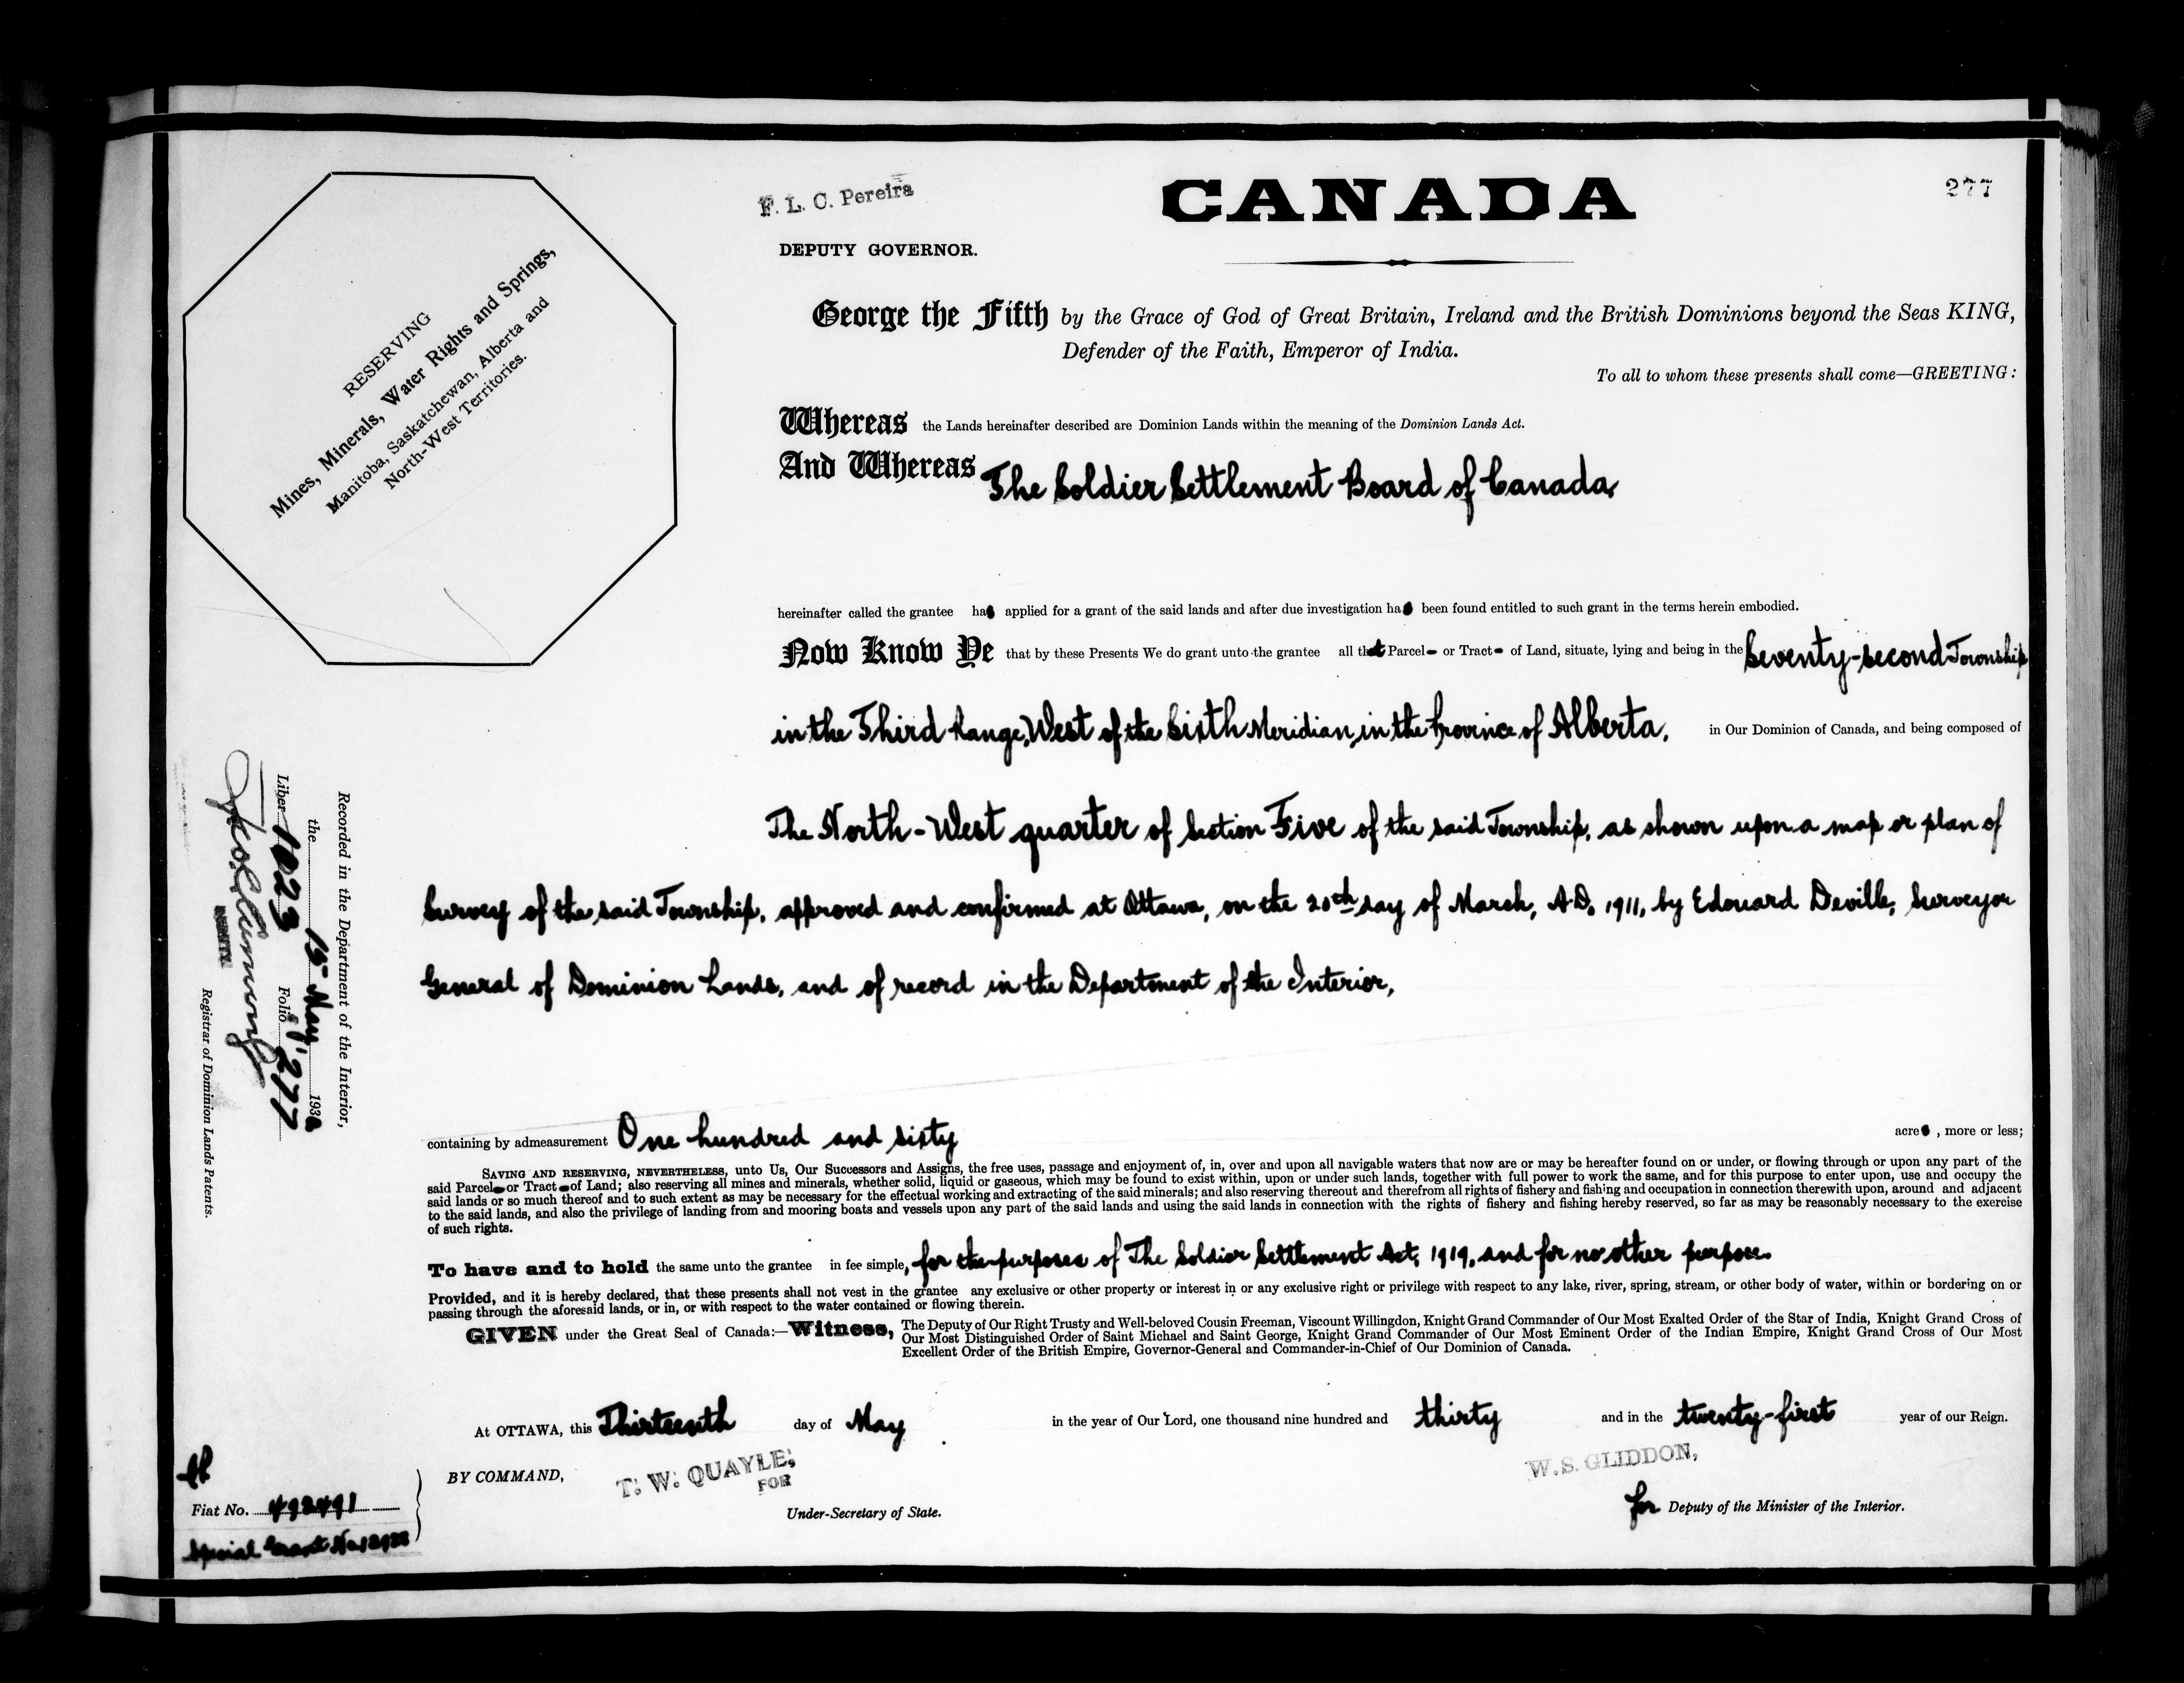 277
F. L. C. Pereira
CANADA
DEPUTY GOVERNOR.
RESERVING
Mines, Minerals, Water Rights and Springs,
Manitoba, Saskatchewan, Alberta and
North-West Territories.
George the Fifth by the Grace of God of Great Britain, Ireland and the British Dominions beyond the Seas KING,
Defender of the Faith, Emperor of India.
To all to whom these presents shall come—GREETING:
Whereas the Lands hereinafter described are Dominion Lands within the meaning of the Dominion Lands Act.
And Whereas The Soldier Settlement Board of Canada
hereinafter called the grantee has applied for a grant of the said lands and after due investigation has been found entitled to such grant in the terms herein embodied.
Now Know Ye that by these Presents We do grant unto the grantee all that Parcel or Tract of Land, situate, lying and being in the Seventy-second Township
in the Third Range, West of the Sixth Meridian, in the Province of Alberta, in Our Dominion of Canada, and being composed of
The North-West quarter of Section Five of the said Township, as shown upon a map or plan of
Survey of the said Township, approved and confirmed at Ottawa, on the 20th day of March, A.D. 1911, by Edouard Deville, Surveyor
General of Dominion Lands, and of record in the Department of the Interior,
Recorded in the Department of the Interior,
the 15 May 1930
Liber 1023 Folio 277
Registrar of Dominion Lands Patents.
containing by admeasurement One hundred and sixty acres, more or less;
SAVING AND RESERVING, NEVERTHELESS, unto Us, Our Successors and Assigns, the free uses, passage and enjoyment of, in, over and upon all navigable waters that now are or may be hereafter found on or under, or flowing through or upon any part of the
said Parcel or Tract of Land; also reserving all mines and minerals, whether solid, liquid or gaseous, which may be found to exist within, upon or under such lands, together with full power to work the same, and for this purpose to enter upon, use and occupy the
said lands or so much thereof and to such extent as may be necessary for the effectual working and extracting of the said minerals; and also reserving thereout and therefrom all rights of fishery and fishing and occupation in connection therewith upon, around and adjacent
to the said lands, and also the privilege of landing from and mooring boats and vessels upon any part of the said lands and using the said lands in connection with the rights of fishery and fishing hereby reserved, so far as may be reasonably necessary to the exercise
of such rights.
To have and to hold the same unto the grantee in fee simple, for the purposes of The Soldier Settlement Act, 1919, and for no other purpose.
Provided, and it is hereby declared, that these presents shall not vest in the grantee any exclusive or other property or interest in or any exclusive right or privilege with respect to any lake, river, spring, stream, or other body of water, within or bordering on or
passing through the aforesaid lands, or in, or with respect to the water contained or flowing therein.
GIVEN under the Great Seal of Canada:—Witness, The Deputy of Our Right Trusty and Well-beloved Cousin Freeman, Viscount Willingdon, Knight Grand Commander of Our Most Exalted Order of the Star of India, Knight Grand Cross of
Our Most Distinguished Order of Saint Michael and Saint George, Knight Grand Commander of Our Most Eminent Order of the Indian Empire, Knight Grand Cross of Our Most
Excellent Order of the British Empire, Governor-General and Commander-in-Chief of Our Dominion of Canada.
At OTTAWA, this Thirteenth day of May in the year of Our Lord, one thousand nine hundred and thirty and in the twenty-first year of our Reign.
BY COMMAND,
T. W. QUAYLE,
FOR
Under-Secretary of State.
W. S. GLIDDON,
for Deputy of the Minister of the Interior.
Fiat No. 492491
Special Grant No.